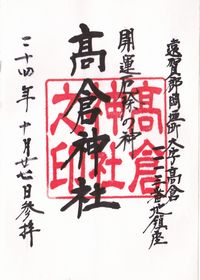 遠賀郡岡垣町大字高倉
一一一三番地鎮座
開運厄除の神
高倉神社
高倉神社之印
二十四年十月廿七日参拝